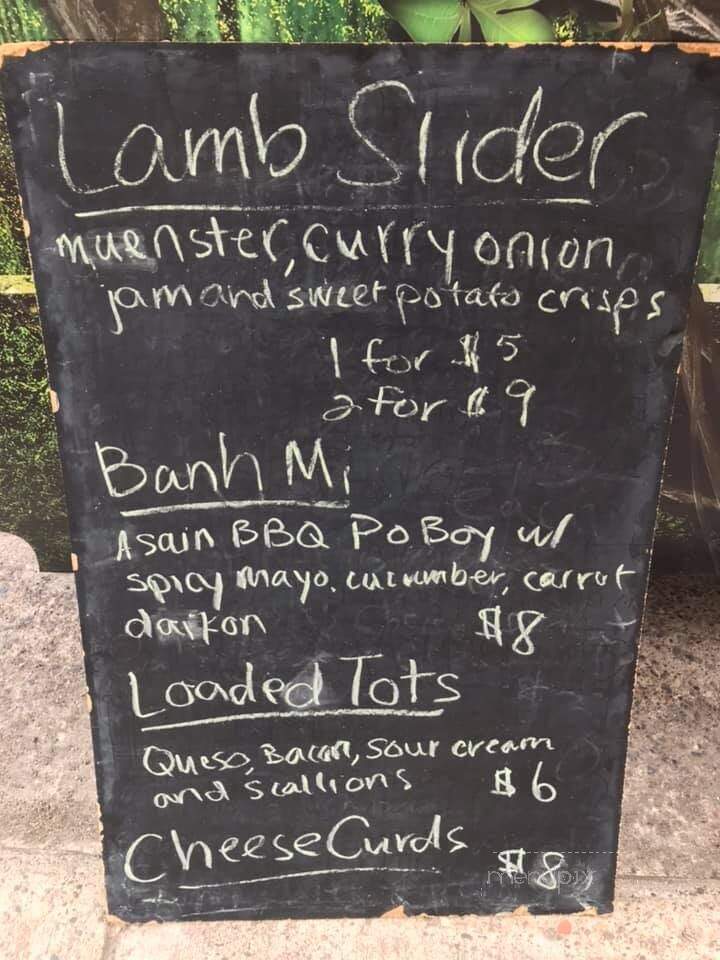 Lamb Slider
muenster, curry onion
jam and sweet potato crisps
1 for $5
2 for $9
Banh Mi
Asain BBQ Po Boy w/
spicy mayo, cucumber, carrot
daikon $8
Loaded Tots
Queso, Bacon, sour cream
and scallions $6
Cheese Curds $8
menupix